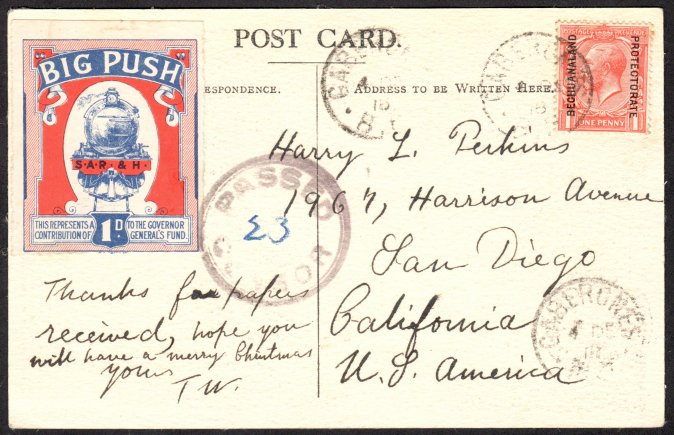 POST CARD.
BIG PUSH
S.A.R. & H.
THIS REPRESENTS A
CONTRIBUTION OF
1D
TO THE GOVERNOR
GENERAL'S FUND.
RESPONDENCE.
ADDRESS TO BE WRITTEN HERE.
BECHUANALAND
PROTECTORATE
POSTAGE & REVENUE
1 ONE PENNY 1
GABER
4
B.P.
GABERO
PASSED
23
CENSOR
Harry L. Perkins
1967, Harrison Avenue
San Diego
California
U.S. America
Thanks for papers
received, hope you
will have a merry Christmas
yours
T W.
GABERONES
4 DE